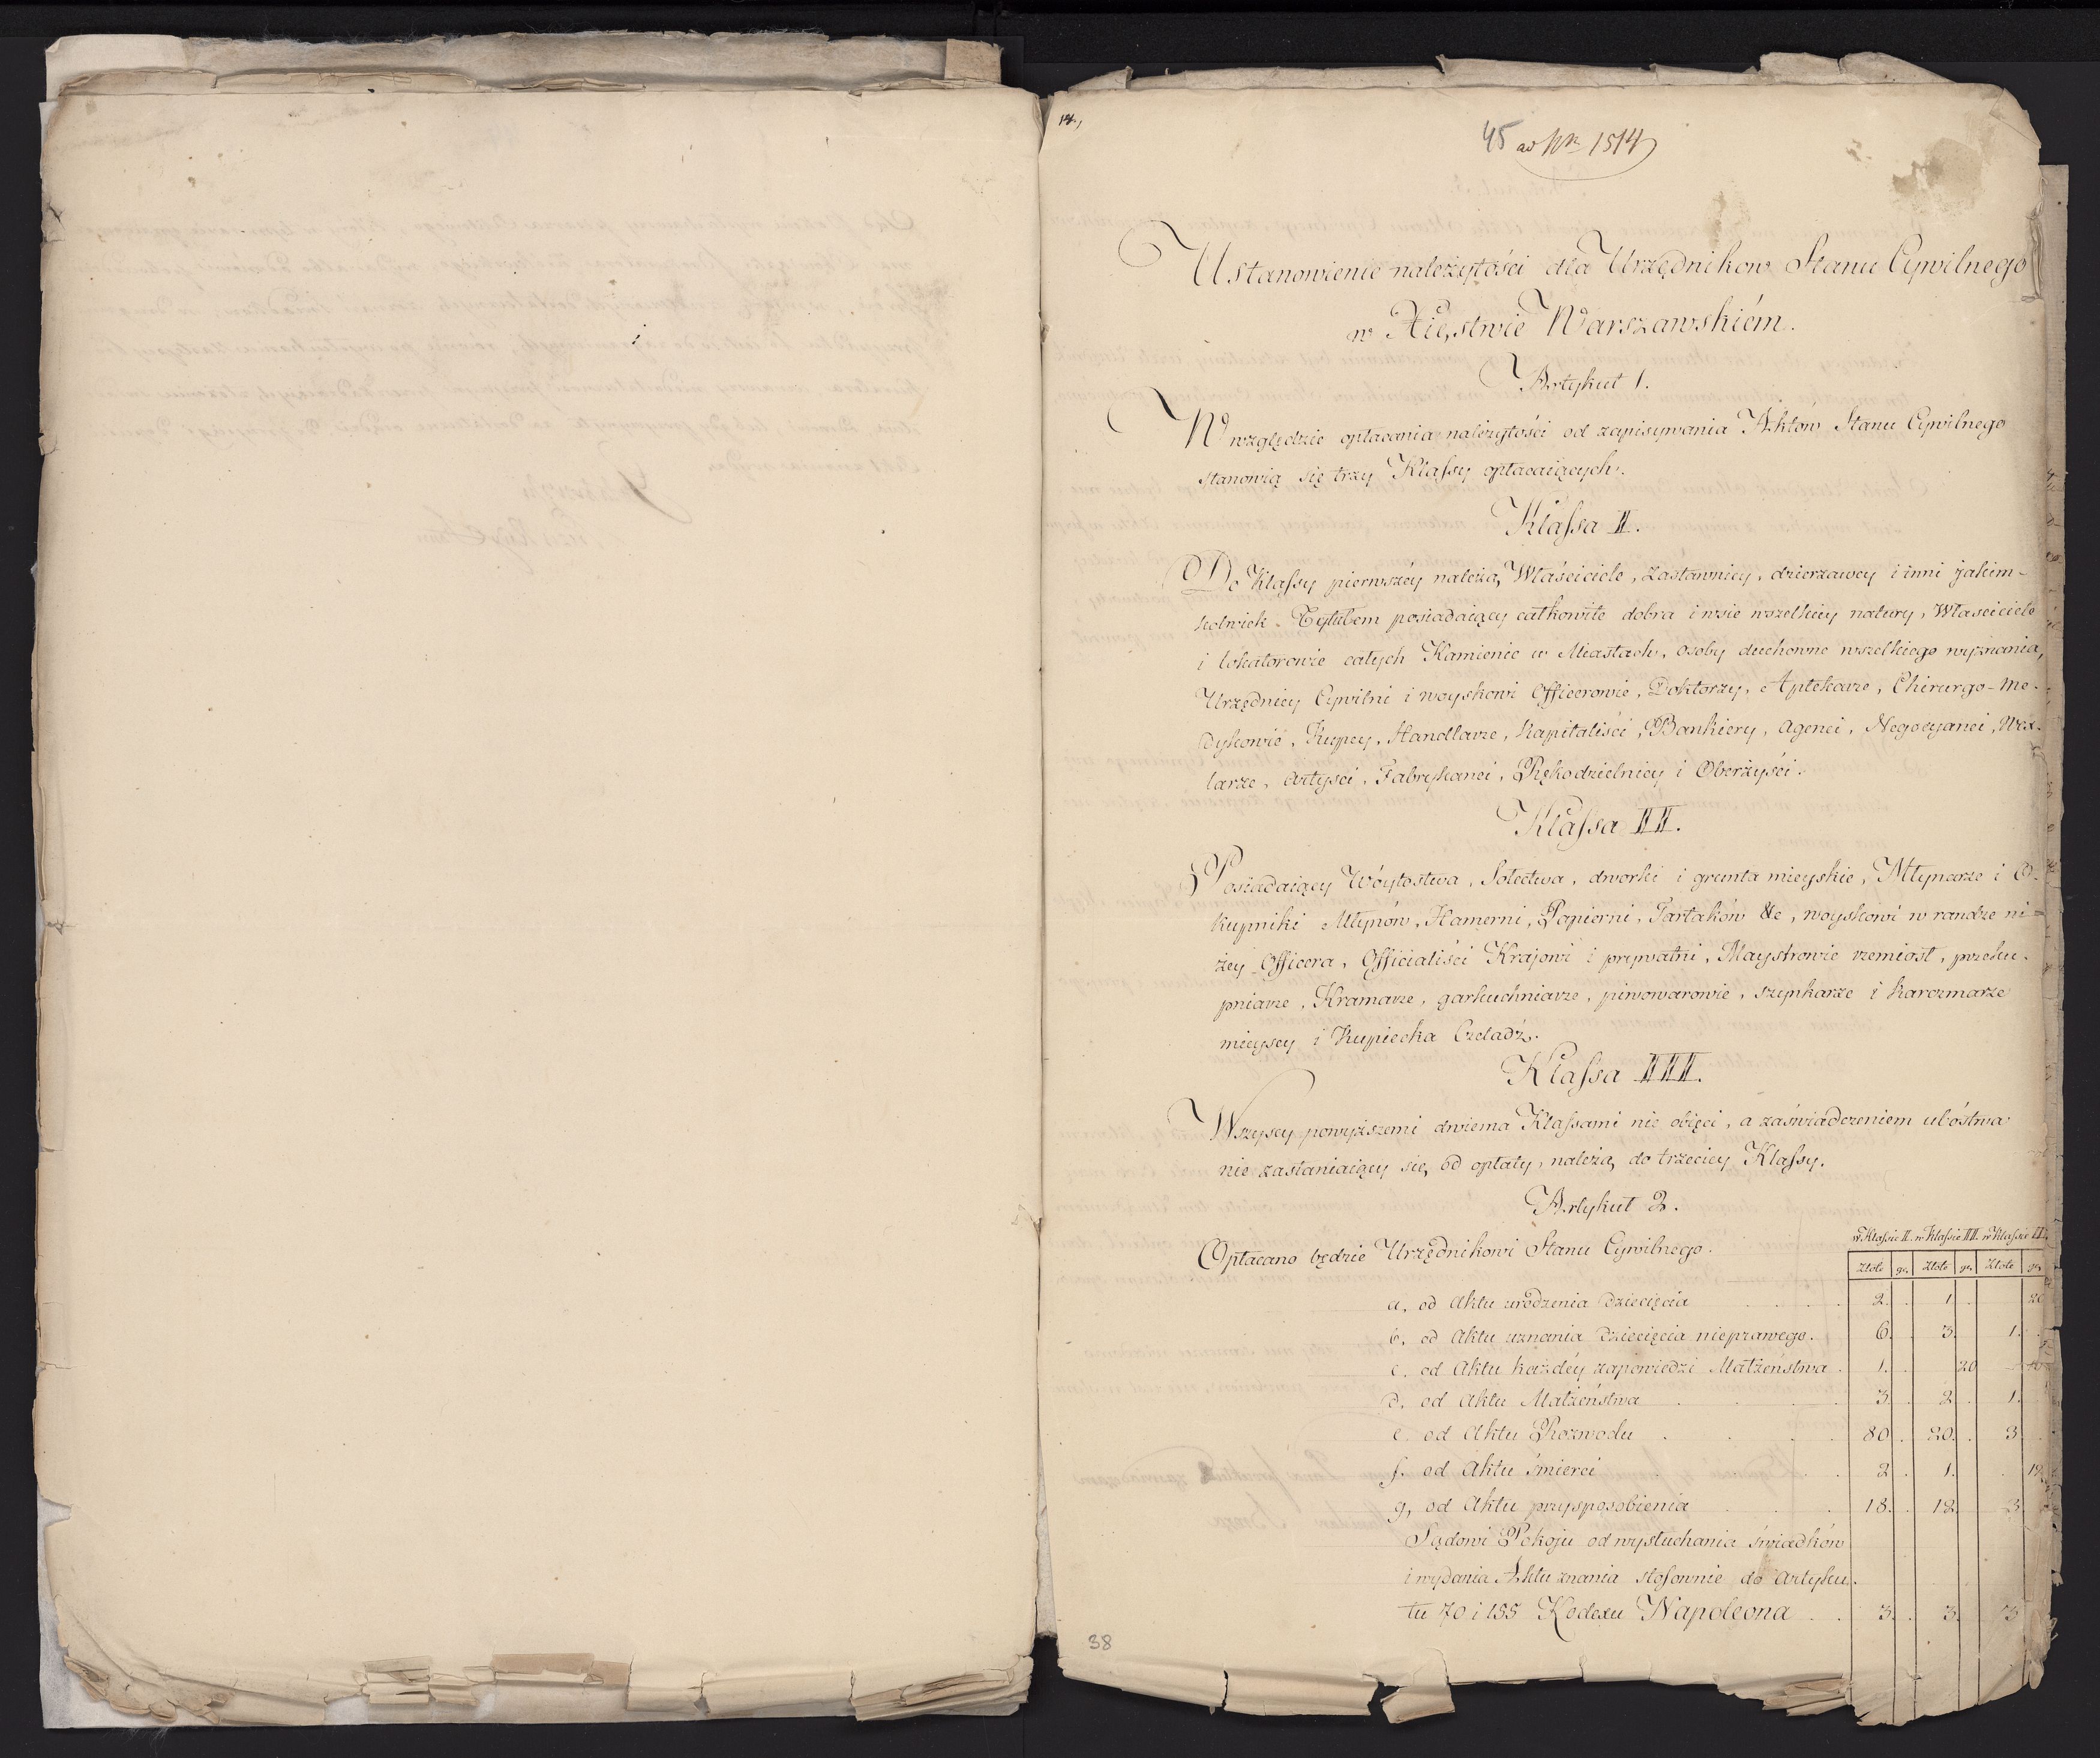 14.,
45 ad Nr 1514
Ustanowienie należytości dla Urzędnikow Stanu Cywilnego
w Xięstwie Warszawskiém.
Artykuł 1.
W względzie opłacania należytości od zapisywania Aktów Stanu Cywilnego
stanowią się trzy Klassy opłacaiących.
Klassa I.
Do Klassy pierwszéy należą, Właściciele, Zastawnicy, dzierzawcy i inni jakim-
kolwiek Tytułem posiadaiący całkowite dobra i wsie wszelkiey natury, Właściciele
i lokatorowie całych Kamienic w Miastach, osoby duchowne wszelkiego wyznania,
Urzędnicy Cywilni i woyskowi Officerowie, Doktorzy, Aptekarze, Chirurgo-Me-
dykowie, Kupcy, Handlarze, Kapitaliści, Bankiery, Agenci, Negocyanci, Wex-
larze, Artyści, Fabrykanci, Rękodzielnicy i Oberżyści.
Klassa II.
Posiadaiący Wóytostwa, Sołectwa, dworki i grunta mieyskie, Młynarze i O-
kupniki Młynów, Hamerni, Papierni, Tartaków &c, woyskowi w randze ni-
żey Officera, Officialiści Krajowi i prywatni, Maystrowie rzemiosł, przeku-
pniarze, Kramarze, garkuchniarze, piwowarowie, szynkarze i karczmarze
mieyscy i Kupiecka Czeladź.
Klassa III.
Wszyscy powyższemi dwiema Klassami nie obięci, a zaświadczeniem ubóstwa
nie zasłaniaiący się, od opłaty, należą do trzeciey Klassy.
Artykuł 2.
Opłacano będzie Urzędnikowi Stanu Cywilnego.
w Klassie I. w Klassie II. w Klassie III.
Złote gr. Złote gr. Złote gr.
a, od Aktu urodzenia dziecięcia . . . . 2. . 1 . 20
b. od Aktu uznania Dziecięcia nieprawego. 6. . 3. 1. .
c. od Aktu każdéy zapowiedzi Małżeństwa . 1. . 20 10
d. od Aktu Małżeństwa . . . . 3. . 2. . 1.
e. od Aktu Rozwodu . . . . 80 . 20. . 3. .
f. od Aktu śmierci . . . . 2 . 1. . 12
g, od Aktu przysposobienia . . . 18. . 12. 3.
Sądowi Pokoju od wysłuchania świadków
i wydania Aktu znania stosownie do Artyku-
łu 70 i 155 Kodexu Napoleona . . 3. . 3. 3
38